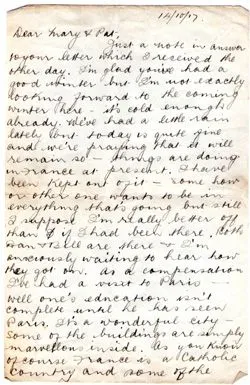 14/10/17
Dear Mary & Pat,
Just a note in answer
to your letter which I received the
other day. I'm glad you've had a
good winter but I'm not exactly
looking forward to the coming
winter here - it's cold enough
already. We've had a little rain
lately but today is quite fine
and we're praying that it will
remain so - things are doing
in France at present. I have
been kept out of it - some how
or other one wants to be in
everything that's going but still
I suppose I'm really better off
than if I had been there, both
Dan & Bill are there & I'm
anxiously waiting to hear how
they got on. As a compensation
I've had a visit to Paris -
well one's education isn't
complete until he has seen
Paris. It's a wonderful city -
some of the buildings are simply
marvellous inside. As you know
of course France is a Catholic
country and some of the